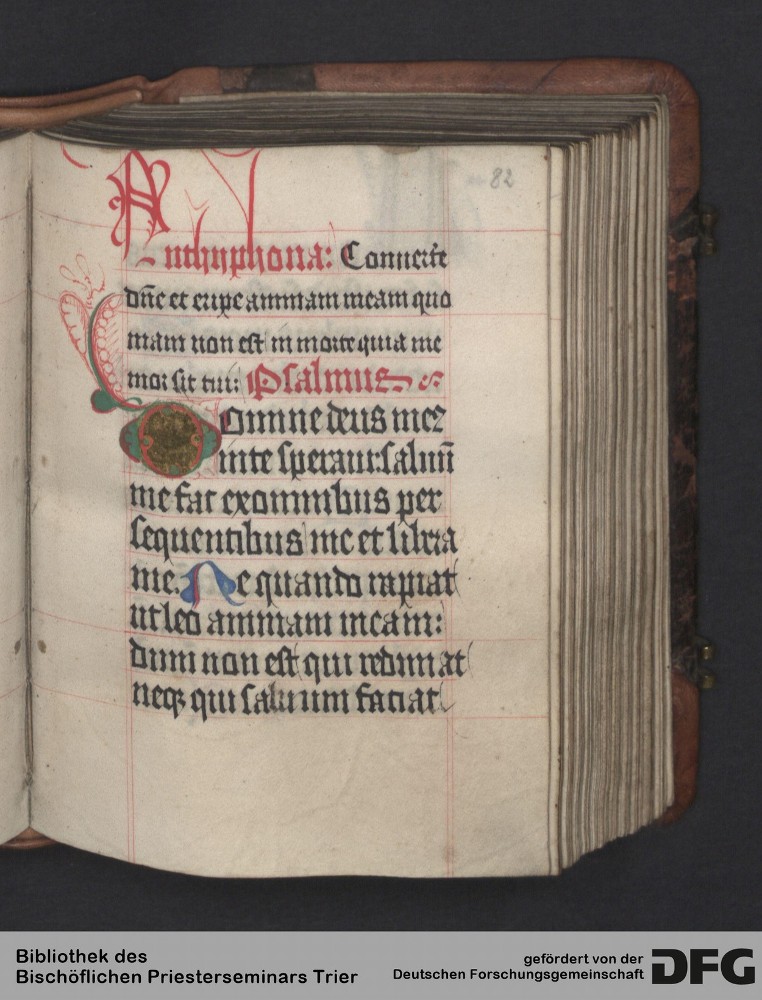 82
Anthiphona: Conuerte
dn̄e et eripe animam meam quo
niam non est in morte quia me
mor sit tui: Psalmus
Domine deus me9
inte speraui: saluū
me fac exomnibus per
sequentibus me et libera
me. Ne quando rapiat
ut leo animam meam:
dum non est qui redimat
neqꝫ qui saluum faciat
Bibliothek des
Bischöflichen Priesterseminars Trier
gefördert von der
Deutschen Forschungsgemeinschaft
DFG